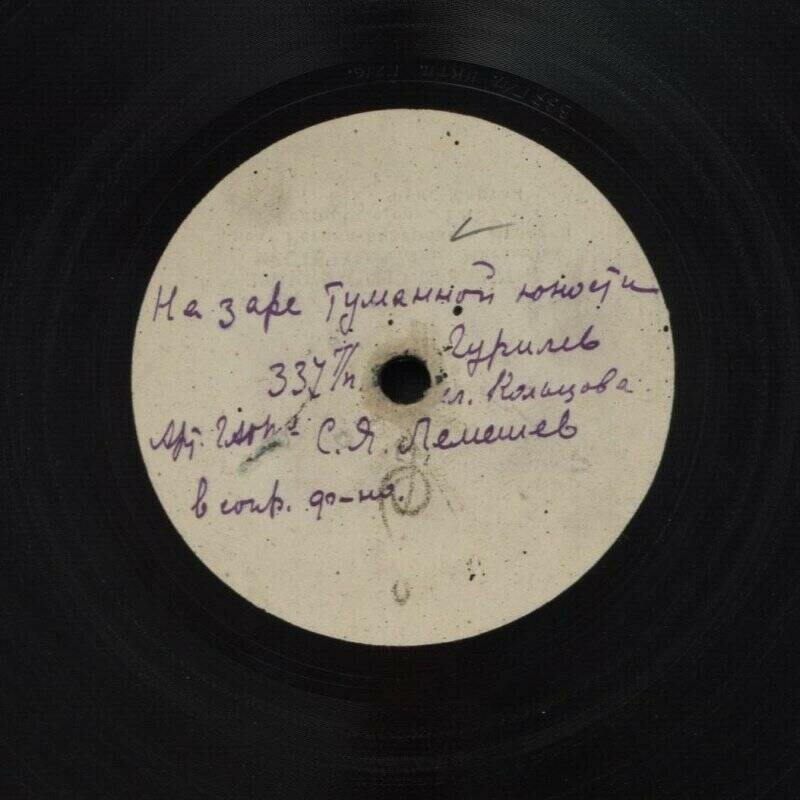 На заре туманной юности
Гурилев
337 т/п.
сл. Кольцова
Арт. ГАБТ - С. Я. Лемешев
в сопр. ф-но.